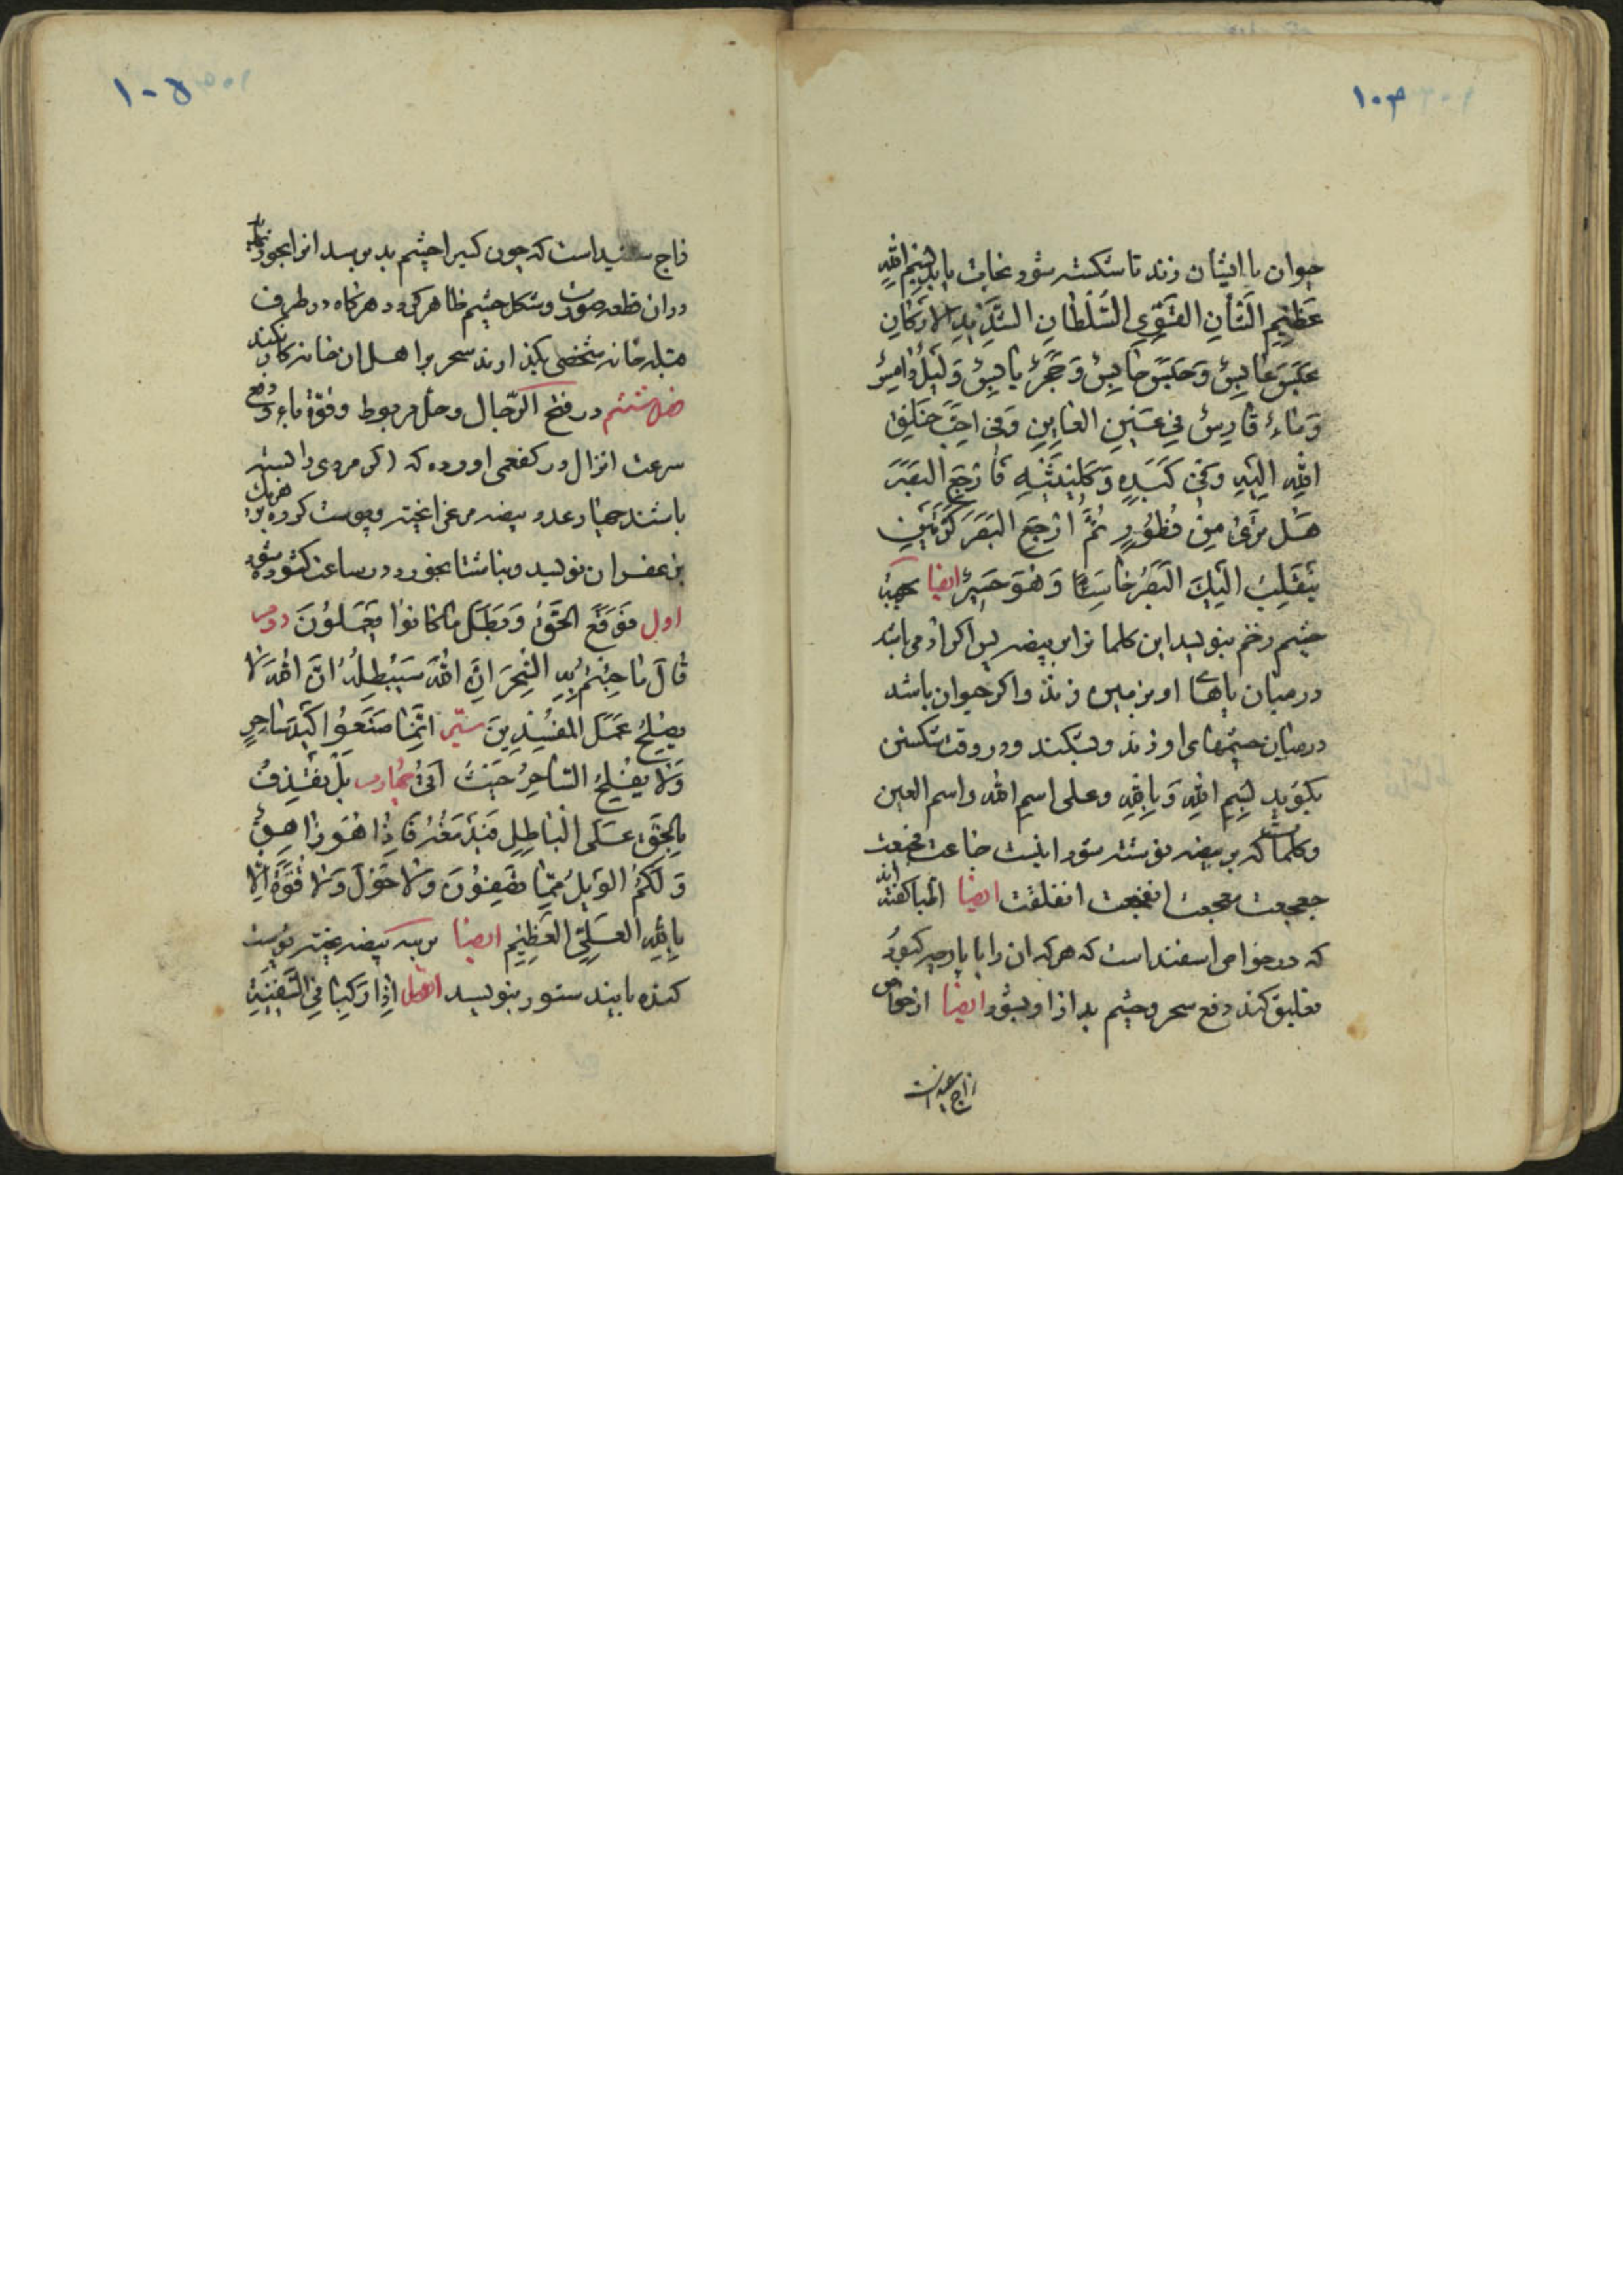 ۱۰۴
جوان یا ایشان زند تا شکسته شود نجات یابد بِسْمِ اللهِ
عَظِیمِ الشَّأنِ القَوِّیِ السُّلْطانِ الشَّدِیدِ الارَکانِ
حَبَسَ عابِسٌ وَحَبَسَ حابِسٌ وَحَجَرٌ یابِسٌ وَلَیْلٌ دامِسٌ
وَماءٌ قارِسٌ فِی عَیْنِ العایِنِ وَفِی اَحَبِّ خَلْقِ
اللهِ اِلَیْهِ وَفِی کَبَدِهِ وَکُلْیَتَیْهِ فَارْجِعِ البَصَرَ
هَلْ تَرَیٰ مِنْ فُطُورٍ ثُمَّ ارْجِعِ البَصَرَ کَرَّتَیْنِ
یَنْقَلِبْ اِلَیْکَ البَصَرُ خاسِئًا وَهُوَ حَسِیرٌ ایضا بجهت
چشم زخم بنویسد این کلما ترا بر بیضه پس اکر ادمی باشد
در میان پاهای او بر زمین زند واکر حیوان باشد
در میان چشمهای او زند وبشکند ودر وقت شکستن
بکوید بِسْمِ اللهِ وَبِاللهِ وعلی اسم الله واسم العین
وکلمات که بر بیضه نوشته شود اینست خاعت مخعت
جعجعت معجعت انفخعت انفلقت ایضا اطبا کفته اند
که در خواص اسفند است که هر که ان را با پارچه کبود
تعلیق کند دفع سحر وچشم بد از او بشود ایضا از خواص
زاج سفیداست
۱۰۵
زاج سفید است که چون کسیرا چشم بد برسد انرا بخور
دران قطعه صورت وشکل چشم ظاهر کردد هرکاه در طرف
قبله خانه شخصی بکذارند سحر بر اهل ان خانه کار نکند
فصل ششم در فتح الرّجال وحل مربوط وقوّة باء ودفع
سرعت انزال در کفعمی اورده که اکر مردی را بسته
باشند چهار عدد بیضه مرغ را پخته وپوست کرده بر هریک
بزعفران نویسد وبناشتا بخورد در ساعت کشوده شود
اول فَوَقَعَ الحَقُّ وَبَطَلَ ماکانوُا یَعْمَلوُنَ دوم
قالَ ماجِئْتُمْ بِهِ السِّحْرَ اِنَّ اللهَ سَیُبْطِلُهُ اِنَّ اللهَ لا
یُصْلِحُ عَمَلَ المُفْسِدِینَ سیّم اِنَّمٰا صَنَعوُا کَیْدُ ساحِرٍ
وَلا یُفْلِحُ السّاحِرُ حَیْثُ اَتیٰ چهارم بَلْ نَقْذِفُ
بِالحَقِّ عَلَی الْباطِلِ فَیَدْمَغُهُ فَاِذٰا هُوَ زاهِقٌ
وَلَکُمُ الوَیْلُ مِمّٰا تَصِفوُنَ وَلا حَوْلَ وَلا قُوَّةَ اِلّا
بِاللهِ العَلِیِّ العَظِیمِ ایضا بر سه بیضه پخته پوست
کنده باید بدستور بنویسد اوّل اِذا رَکِبا فِی السَّفِینَةِ